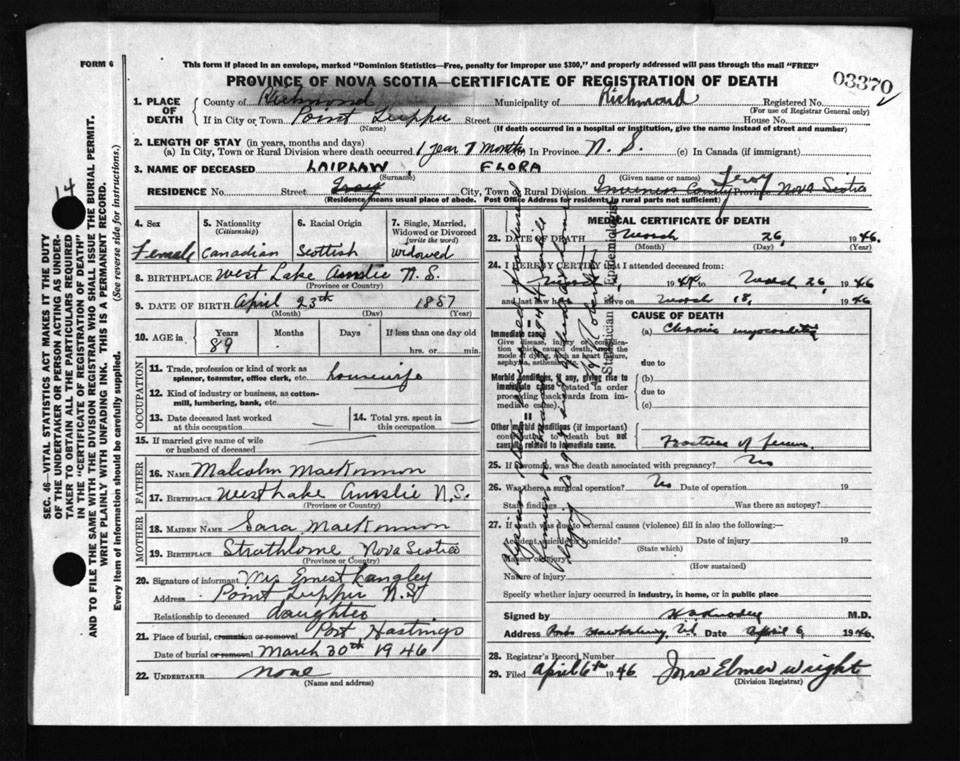 FORM 6
This form if placed in an envelope, marked "Dominion Statistics—Free, penalty for improper use $300," and properly addressed will pass through the mail "FREE"
PROVINCE OF NOVA SCOTIA—CERTIFICATE OF REGISTRATION OF DEATH
03370
1. PLACE OF DEATH County of Richmond Municipality of Richmond Registered No.
(For use of Registrar General only)
If in City or Town Point Tupper Street House No.
(Name) (If death occurred in a hospital or institution, give the name instead of street and number)
2. LENGTH OF STAY (in years, months and days)
(a) In City, Town or Rural Division where death occurred 1 year 7 months In Province N. S. (c) In Canada (if immigrant)
3. NAME OF DECEASED LAIDLAW, FLORA
(Surname) (Given name or names)
RESIDENCE No. Street City, Town or Rural Division Inverness County Province Nova Scotia
(Residence means usual place of abode. Post Office Address for residents to rural parts not sufficient)
14
SEC. 46—VITAL STATISTICS ACT MAKES IT THE DUTY
OF THE UNDERTAKER OR PERSON ACTING AS UNDER-
TAKER TO OBTAIN ALL THE PARTICULARS REQUIRED
IN THE "CERTIFICATE OF REGISTRATION OF DEATH"
AND TO FILE THE SAME WITH THE DIVISION REGISTRAR WHO SHALL ISSUE THE BURIAL PERMIT.
WRITE PLAINLY WITH UNFADING INK. THIS IS A PERMANENT RECORD.
Every item of information should be carefully supplied. (See reverse side for instructions.)
4. Sex 5. Nationality (Citizenship) 6. Racial Origin 7. Single, Married, Widowed or Divorced (write the word)
Female Canadian Scottish Widowed
8. BIRTHPLACE West Lake Ainslie N.S.
(Province or Country)
9. DATE OF BIRTH April 23th 1857
(Month) (Day) (Year)
10. AGE in Years Months Days If less than one day old
89 hrs. or min.
OCCUPATION
11. Trade, profession or kind of work as housewife
spinner, teamster, office clerk, etc.
12. Kind of industry or business, as cotton-
mill, lumbering, bank, etc.
13. Date deceased last worked at this occupation 14. Total yrs. spent in this occupation
15. If married give name of wife
or husband of deceased
FATHER
16. NAME Malcolm MacKinnon
17. BIRTHPLACE West Lake Ainslie N.S.
(Province or Country)
MOTHER
18. MAIDEN NAME Sara MacKinnon
19. BIRTHPLACE Strathlorne Nova Scotia
(Province or Country)
20. Signature of informant Mrs Ernest Langley
Address Point Tupper N.S.
Relationship to deceased daughter
21. Place of burial, cremation or removal Port Hastings
Date of burial or removal March 30th 1946
22. UNDERTAKER None
(Name and address)
MEDICAL CERTIFICATE OF DEATH
23. DATE OF DEATH March 26, 1946.
(Month) (Day)
24. I HEREBY CERTIFY that I attended deceased from:
March 26, 1946
and last saw h alive on March 18, 1946
CAUSE OF DEATH
Immediate cause— (a) Chronic myocarditis
Give disease, injury or complication which caused death, not the mode of dying, such as heart failure, asphyxia, asthenia,
due to
Morbid conditions, if any, giving rise to (b)
immediate cause (stated in order due to
proceeding backwards from im-
mediate cause). (c)
Other morbid conditions (if important)
contributing to death but not
causally related to immediate cause. Fracture of femur
25. If a woman, was the death associated with pregnancy? No
26. Was there a surgical operation? No Date of operation 19
State findings Was there an autopsy?
27. If death was due to external causes (violence) fill in also the following:—
Accident, suicide or homicide? Date of injury 19
(State which)
Manner of injury
(How sustained)
Nature of injury
Specify whether injury occurred in industry, in home, or in public place
Signed by M.D.
Address Port Hawkesbury, Date April 6, 1946
28. Registrar's Record Number
29. Filed April 6th 1946 Elmer Wright
(Division Registrar)
Statistician & Epidemiologist